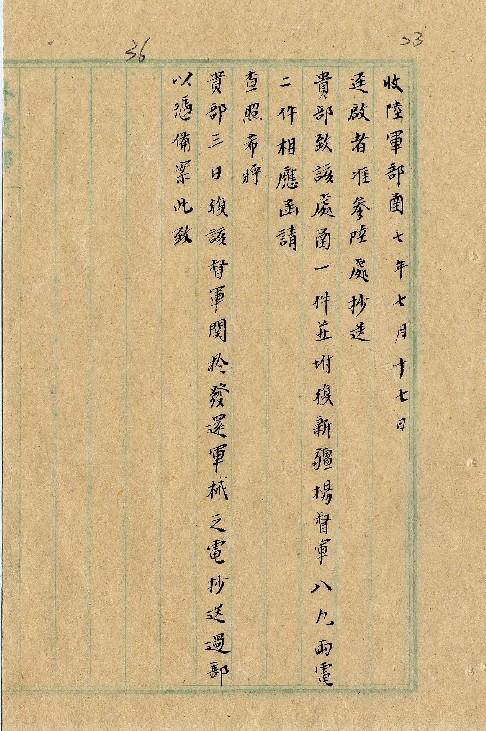 23
36
收陸軍部函七年七月十七日
逕啟者准參陸處抄送
貴部致該處函一件並坿復新疆楊督軍八九兩電
二件相應函請
查照希將
貴部三日復該督軍關於發還軍械之電抄送過部
以憑備案此致